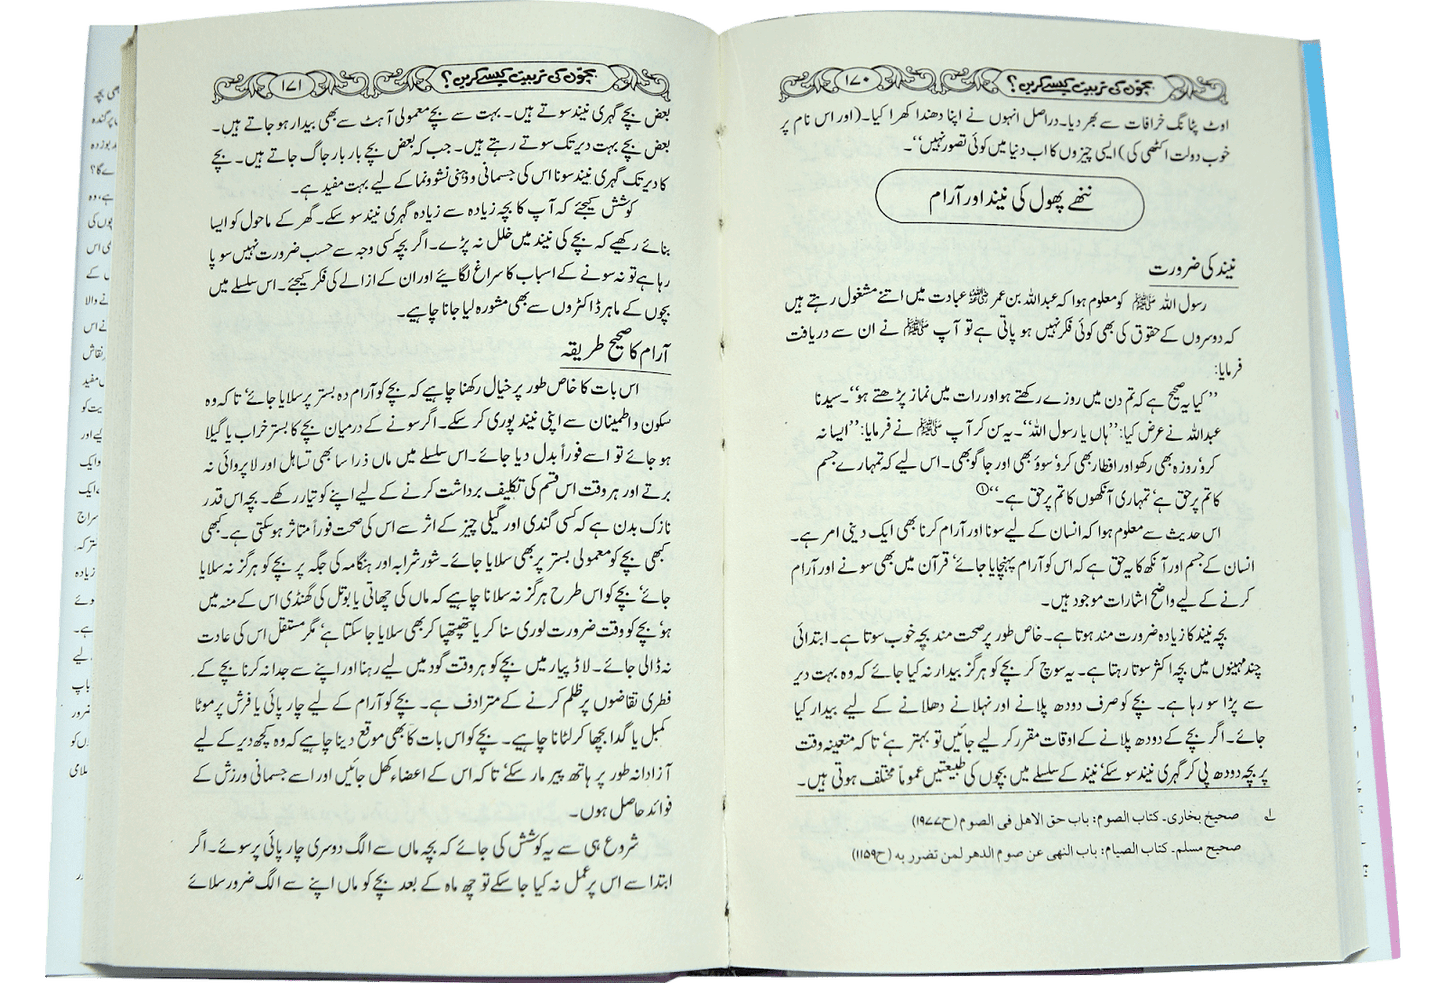 بچوں کی تربیت کیسے کریں؟ ۱۷۰
اوٹ پٹانگ خرافات سے بھر دیا۔ دراصل انہوں نے اپنا دھندا کھرا کیا۔ (اور اس نام پر
خوب دولت اکٹھی کی) ایسی چیزوں کا اب دنیا میں کوئی تصور نہیں‘‘۔
ننھے پھول کی نیند اور آرام
نیند کی ضرورت
رسول اللہ ﷺ کو معلوم ہوا کہ عبداللہ بن عمر ﷺ عبادت میں اتنے مشغول رہتے ہیں
کہ دوسروں کے حقوق کی بھی کوئی فکر نہیں ہو پاتی ہے تو آپ ﷺ نے ان سے دریافت
فرمایا:
’’کیا یہ صحیح ہے کہ تم دن میں روزے رکھتے ہو اور رات میں نماز پڑھتے ہو‘‘۔ سیدنا
عبداللہ نے عرض کیا: ’’ہاں یا رسول اللہ‘‘۔ یہ سن کر آپ ﷺ نے فرمایا: ’’ایسا نہ
کرو‘ روزہ بھی رکھو اور افطار بھی کرو‘ سوؤ بھی اور جاگو بھی۔ اس لیے کہ تمہارے جسم
کا تم پر حق ہے‘ تمہاری آنکھوں کا تم پر حق ہے۔‘‘①
اس حدیث سے معلوم ہوا کہ انسان کے لیے سونا اور آرام کرنا بھی ایک دینی امر ہے۔
انسان کے جسم اور آنکھ کا یہ حق ہے کہ اس کو آرام پہنچایا جائے‘ قرآن میں بھی سونے اور آرام
کرنے کے لیے واضح اشارات موجود ہیں۔
بچہ نیند کا زیادہ ضرورت مند ہوتا ہے۔ خاص طور پر صحت مند بچہ خوب سوتا ہے۔ ابتدائی
چند مہینوں میں بچہ اکثر سوتا رہتا ہے۔ یہ سوچ کر بچے کو ہرگز بیدار نہ کیا جائے کہ وہ بہت دیر
سے پڑا سو رہا ہے۔ بچے کو صرف دودھ پلانے اور نہلانے دھلانے کے لیے بیدار کیا
جائے۔ اگر بچے کے دودھ پلانے کے اوقات مقرر کر لیے جائیں تو بہتر ہے‘ تاکہ متعینہ وقت
پر بچہ دودھ پی کر گہری نیند سو سکے‘ نیند کے سلسلے میں بچوں کی طبیعتیں عموماً مختلف ہوتی ہیں۔
۱ صحیح بخاری۔ کتاب الصوم: باب حق الاھل فی الصوم (ح۱۹۷۷)
صحیح مسلم۔ کتاب الصیام: باب النھی عن صوم الدھر لمن تضرر بہ (ح۱۱۵۹)
بچوں کی تربیت کیسے کریں؟ ۱۷۱
بعض بچے گہری نیند سوتے ہیں۔ بہت سے بچے معمولی آہٹ سے بھی بیدار ہو جاتے ہیں۔
بعض بچے بہت دیر تک سوتے رہتے ہیں۔ جب کہ بعض بچے بار بار جاگ جاتے ہیں۔ بچے
کا دیر تک گہری نیند سونا اس کی جسمانی و ذہنی نشوونما کے لیے بہت مفید ہے۔
کوشش کیجئے کہ آپ کا بچہ زیادہ سے زیادہ گہری نیند سو سکے۔ گھر کے ماحول کو ایسا
بنائے رکھیے کہ بچے کی نیند میں خلل نہ پڑے۔ اگر بچہ کسی وجہ سے حسب ضرورت نہیں سو پا
رہا ہے تو نہ سونے کے اسباب کا سراغ لگائیے اور ان کے ازالے کی فکر کیجئے۔ اس سلسلے میں
بچوں کے ماہر ڈاکٹروں سے بھی مشورہ لیا جانا چاہیے۔
آرام کا صحیح طریقہ
اس بات کا خاص طور پر خیال رکھنا چاہیے کہ بچے کو آرام دہ بستر پر سلایا جائے‘ تاکہ وہ
سکون و اطمینان سے اپنی نیند پوری کر سکے۔ اگر سونے کے درمیان بچے کا بستر خراب یا گیلا
ہو جائے تو اسے فوراً بدل دیا جائے۔ اس سلسلے میں ماں ذرا سا بھی تساہل اور لاپروائی نہ
برتے اور ہر وقت اس قسم کی تکلیف برداشت کرنے کے لیے اپنے کو تیار رکھے۔ بچہ اس قدر
نازک بدن ہے کہ کسی گندی اور گیلی چیز کے اثر سے اس کی صحت فوراً متاثر ہو سکتی ہے۔ کبھی
کبھی بچے کو معمولی بستر پر بھی سلایا جائے۔ شور شرابہ اور ہنگامہ کی جگہ پر بچے کو ہرگز نہ سلایا
جائے‘ بچے کو اس طرح ہرگز نہ سلانا چاہیے کہ ماں کی چھاتی یا بوتل کی گھنڈی اس کے منہ میں
ہو‘ بچے کو وقت ضرورت لوری سنا کر یا تھپتھپا کر بھی سلایا جا سکتا ہے‘ مگر مستقل اس کی عادت
نہ ڈالی جائے۔ لاڈ پیار میں بچے کو ہر وقت گود میں لیے رہنا اور اپنے سے جدا نہ کرنا بچے کے
فطری تقاضوں پر ظلم کرنے کے مترادف ہے۔ بچے کو آرام کے لیے چارپائی یا فرش پر موٹا
کمبل یا گدا بچھا کر لٹانا چاہیے۔ بچے کو اس بات کا بھی موقع دینا چاہیے کہ وہ کچھ دیر کے لیے
آزادانہ طور پر ہاتھ پیر مار سکے‘ تاکہ اس کے اعضاء کھل جائیں اور اسے جسمانی ورزش کے
فوائد حاصل ہوں۔
شروع ہی سے یہ کوشش کی جائے کہ بچہ ماں سے الگ دوسری چارپائی پر سوئے۔ اگر
ابتدا سے اس پر عمل نہ کیا جا سکے تو چھ ماہ کے بعد بچے کو ماں اپنے سے الگ ضرور سلائے